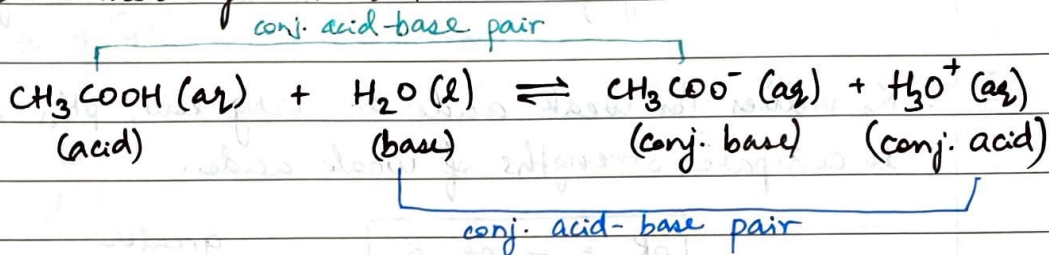 conj. acid-base pair
CH₃COOH (aq) + H₂O (l) ⇌ CH₃COO⁻ (aq) + H₃O⁺ (aq)
(acid) (base) (conj. base) (conj. acid)
conj. acid-base pair